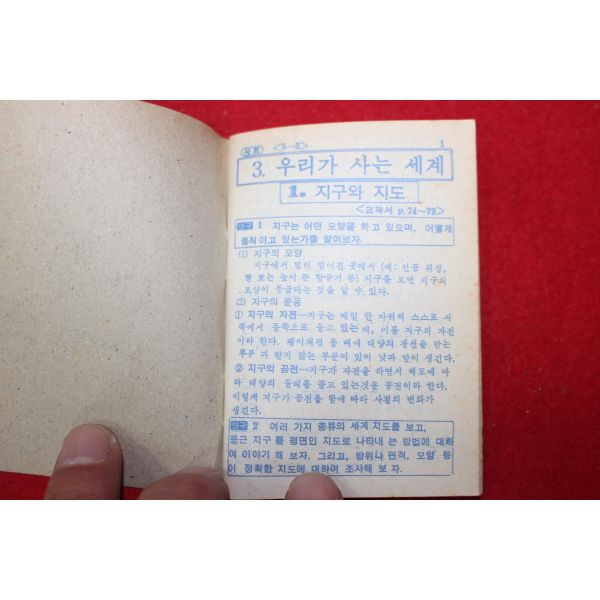 사회 <5-2> 1
3. 우리가 사는 세계
1. 지구와 지도
<교과서 p.74~79>
연구 1 지구는 어떤 모양을 하고 있으며, 어떻게
움직이고 있는가를 알아보자.
(1) 지구의 모양
지구에서 멀리 떨어진 곳에서 (예: 인공 위성,
달 또는 높이 뜬 항공기 등) 지구를 보면 지구의
모양이 둥글다는 것을 알 수 있다.
(2) 지구의 운동
① 지구의 자전…지구는 매일 한 바퀴씩 스스로 서
쪽에서 동쪽으로 돌고 있는 데, 이를 지구의 자전
이라 한다. 팽이처럼 돌 때에 태양의 광선을 받는
부분 과 받지 않는 부분이 있어 낮과 밤이 생긴다.
② 지구의 공전…지구가 자전을 하면서 궤도에 따
라 태양의 둘레를 돌고 있는것을 공전이라 한다.
이렇게 지구가 공전을 함에 따라 사철의 변화가
생긴다.
연구 2 여러 가지 종류의 세계 지도를 보고,
둥근 지구 를 평면인 지도로 나타내 는 방법에 대하
여 이야기 해 보자. 그리고, 방위나 면적, 모양 등
이 정확한 지도에 대하여 조사해 보 자.